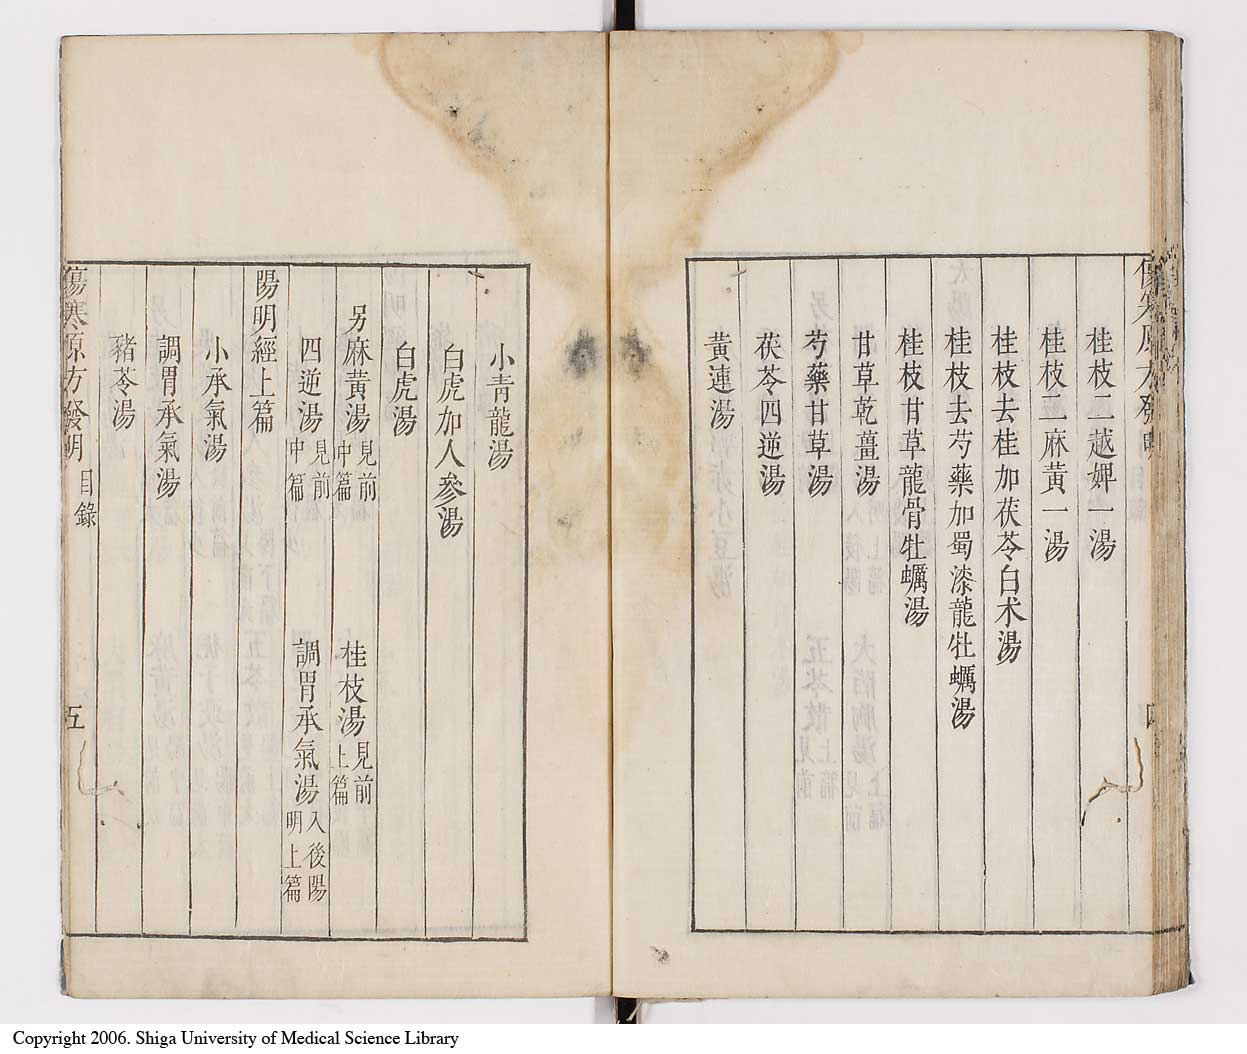 桂枝二越婢一湯
桂枝二麻黃一湯
桂枝去桂加茯苓白术湯
桂枝去芍藥加蜀漆龍牡蠣湯
桂枝甘草龍骨牡蠣湯
甘草乾薑湯
芍藥甘草湯
茯苓四逆湯
黃連湯
小青龍湯
白虎加人參湯
白虎湯
另麻黃湯見前中篇 桂枝湯見前上篇
四逆湯見前中篇 調胃承氣湯入後陽明上篇
陽明經上篇
小承氣湯
調胃承氣湯
豬苓湯
傷寒原方發明 目錄 五
Copyright 2006. Shiga University of Medical Science Library